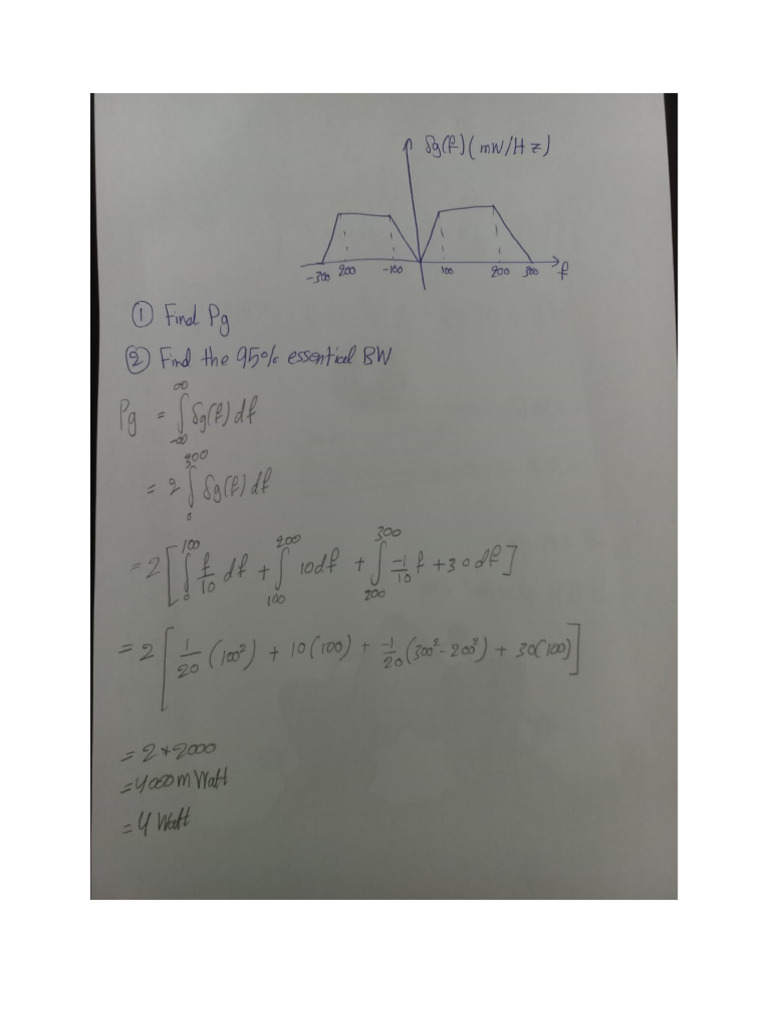 Sg(f) (mW/Hz)
-300 200 -100 100 200 300 f
① Find Pg
② Find the 95% essential BW
Pg = ∫_{-∞}^{∞} Sg(f) df
= 2 ∫_{0}^{300} Sg(f) df
= 2 [ ∫_{0}^{100} f/10 df + ∫_{100}^{200} 10 df + ∫_{200}^{300} -1/10 f + 30 df ]
= 2 [ 1/20 (100²) + 10(100) + -1/20 (300² - 200²) + 30(100) ]
= 2 * 2000
= 4000 m Watt
= 4 Watt